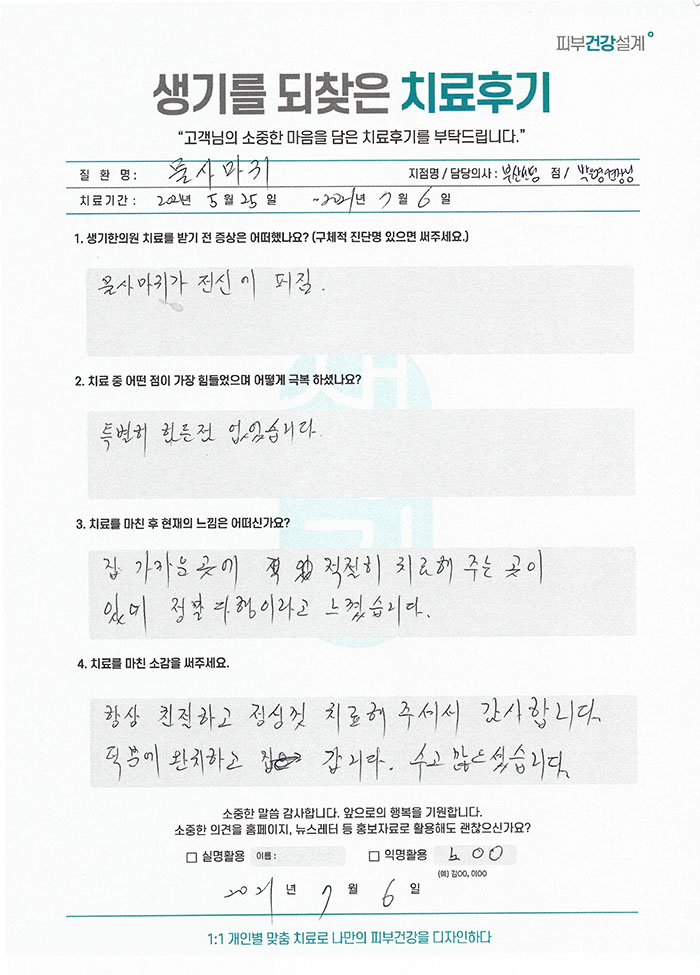 피부건강설계
생기를 되찾은 치료후기
“고객님의 소중한 마음을 담은 치료후기를 부탁드립니다.”
질 환 명 : 물사마귀 지점명 / 담당의사 : 부산센텀 점 /
치료기간 : 2021년 5월 25일 ~2021년 7월 6일
1. 생기한의원 치료를 받기 전 증상은 어떠했나요? (구체적 진단명 있으면 써주세요.)
물사마귀가 전신에 퍼짐.
2. 치료 중 어떤 점이 가장 힘들었으며 어떻게 극복 하셨나요?
특별히 힘든점 없었습니다.
3. 치료를 마친 후 현재의 느낌은 어떠신가요?
집 가까운 곳에 적절히 치료해 주는 곳이
있어 정말 다행이라고 느꼈습니다.
4. 치료를 마친 소감을 써주세요.
항상 친절하고 정성껏 치료해 주셔서 감사합니다.
덕분에 완치하고 갑니다. 수고 많으셨습니다.
소중한 말씀 감사합니다. 앞으로의 행복을 기원합니다.
소중한 의견을 홈페이지, 뉴스레터 등 홍보자료로 활용해도 괜찮으신가요?
실명활용 이름 : 익명활용 노OO
(예) 김OO, 이OO
2021년 7월 6일
1:1 개인별 맞춤 치료로 나만의 피부건강을 디자인하다